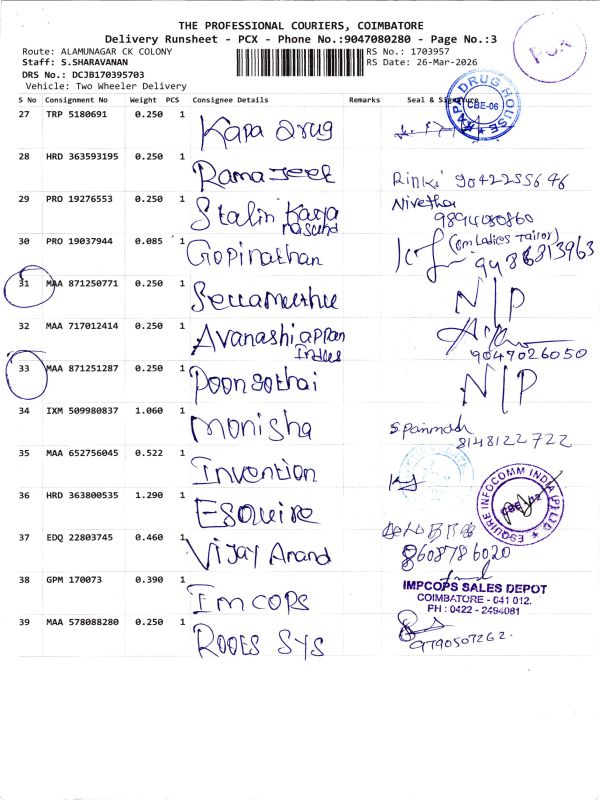 THE PROFESSIONAL COURIERS, COIMBATORE
Delivery Runsheet - PCX - Phone No.:9047080280 - Page No.:3
Route: ALAMUNAGAR CK COLONY
RS No.: 1703957
Staff: S.SHARAVANAN
RS Date: 26-Mar-2026
DRS No.: DCJB170395703
Vehicle: Two Wheeler Delivery
PCX
S No Consignment No Weight PCS Consignee Details Remarks Seal & Signature
27 TRP 5180691 0.250 1 Kapa Drug
KAPA DRUG HOUSE CBE-06
28 HRD 363593195 0.250 1 Ramajeet Rinki 9042255646
29 PRO 19276553 0.250 1 Stalin Nivetha
9894080860
30 PRO 19037944 0.085 1 Gopinathan (Om Ladies Tailor)
9486813963
31 MAA 871250771 0.250 1 Sellamuthu N/P
32 MAA 717012414 0.250 1 Avanashiappan
Indus 9047026050
33 MAA 871251287 0.250 1 Poongothai N/P
34 IXM 509980837 1.060 1 Monisha
8148122722
35 MAA 652756045 0.522 1 Invention
36 HRD 363800535 1.290 1 Esquire
ESQUIRE INFOCOMM INDIA (P) LTD
37 EDQ 22803745 0.460 1 Vijay Anand 8608786020
38 GPM 170073 0.390 1 Imcops
IMPCOPS SALES DEPOT
COIMBATORE - 641 012.
PH : 0422 - 2494081
39 MAA 578088280 0.250 1 Rooes Sys 9790507262